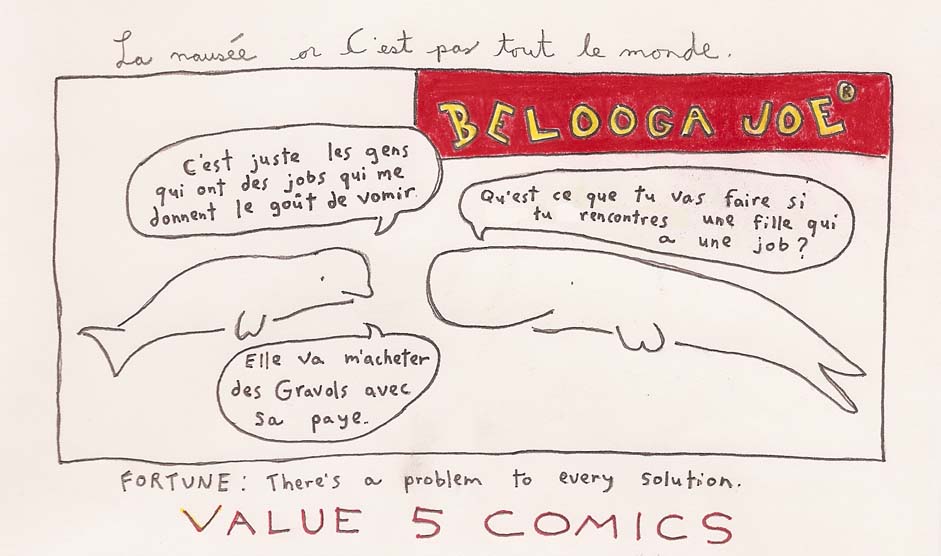 La nausée or C'est pas tout le monde.
BELOOGA JOE ®
C'est juste les gens
qui ont des jobs qui me
donnent le goût de vomir.
Qu'est ce que tu vas faire si
tu rencontres une fille qui
a une job?
Elle va m'acheter
des Gravols avec
sa paye.
FORTUNE: There's a problem to every solution.
VALUE 5 COMICS